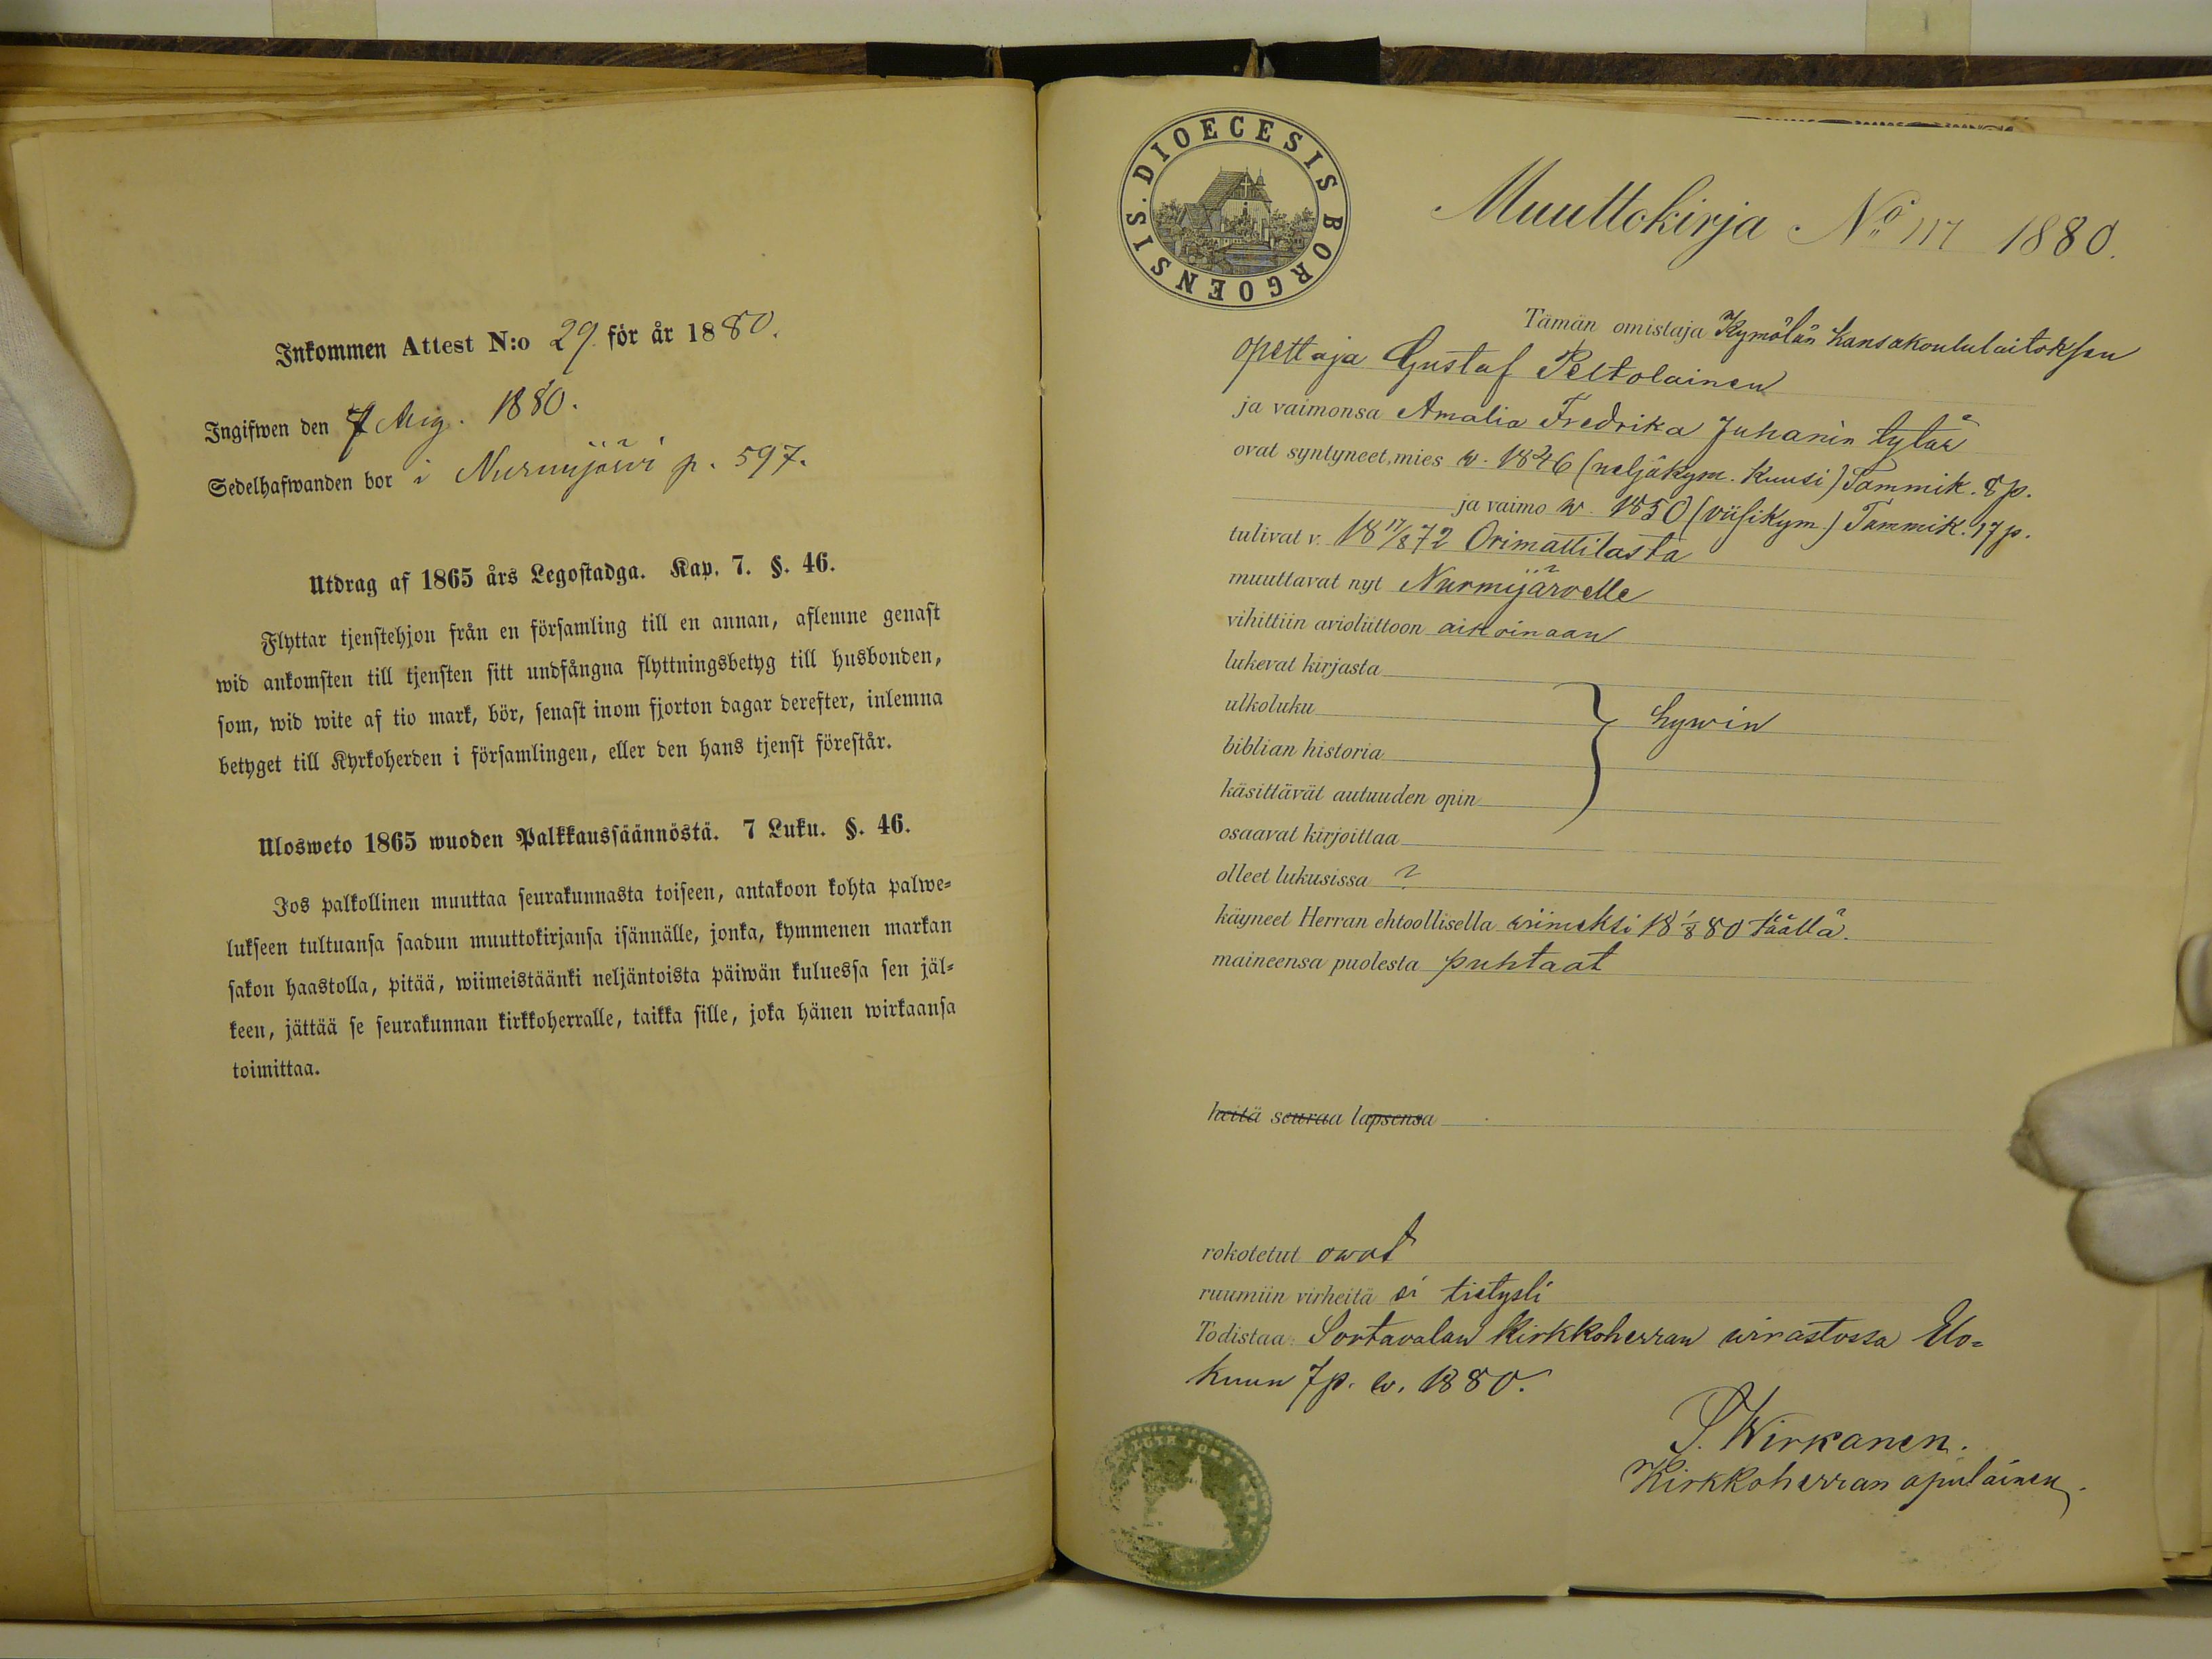 Inkommen Attest N:o 29. för år 1880.
Ingifwen den 7 Aug. 1880.
Sedelhafwanden bor i Nurmijärvi p. 597.
Utdrag af 1865 års Legostadga. Kap. 7. §. 46.
Flyttar tjenstehjon från en församling till en annan, aflemne genast
wid ankomsten till tjensten sitt undfångna flyttningsbetyg till husbonden,
som, wid wite af tio mark, bör, senast inom fjorton dagar derefter, inlemna
betyget till Kyrkoherden i församlingen, eller den hans tjenst förestår.
Ulosweto 1865 wuoden Palkkaussäännöstä. 7 Luku. §. 46.
Jos palkollinen muuttaa seurakunnasta toiseen, antakoon kohta palwe=
lukseen tultuansa saadun muuttokirjansa isännälle, jonka, kymmenen markan
sakon haastolla, pitää, wiimeistäänki neljäntoista päiwän kuluessa sen jäl=
keen, jättää se seurakunnan kirkkoherralle, taikka sille, joka hänen wirkaansa
toimittaa.
DIOECESIS BORGOENSIS.
Muuttokirja No 117 1880.
Tämän omistaja Kymölän kansakoululaitoksen
opettaja Gustaf Peltolainen
ja vaimonsa Amalia Fredrika Juhanin tytär
ovat syntyneet, mies w. 1846 (neljäkym. kuusi) Tammik. 8 p.
ja vaimo w. 1850 (viisikym.) Tammik. 17 p.
tulivat v. 18 17/8 72 Orimattilasta
muuttavat nyt Nurmijärvelle
vihittiin avioliittoon aikoinaan
lukevat kirjasta
ulkoluku } hywin
biblian historia
käsittävät autuuden opin
osaavat kirjoittaa
olleet lukusissa ?
käyneet Herran ehtoollisella wiimeksi 18 1/8 80 täällä.
maineensa puolesta puhtaat
heitä seuraa lapsensa
rokotetut owat
ruumiin virheitä ei tietysti
Todistaa: Sortavalan kirkkoherran wirastossa Elo=
kuun 7 p. w. 1880.
S. Wirkanen.
Kirkkoherran apulainen.